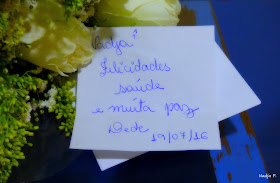 Nadja
Felicidades
saúde
e muita paz
Dede
19/07/16
Nadja P.